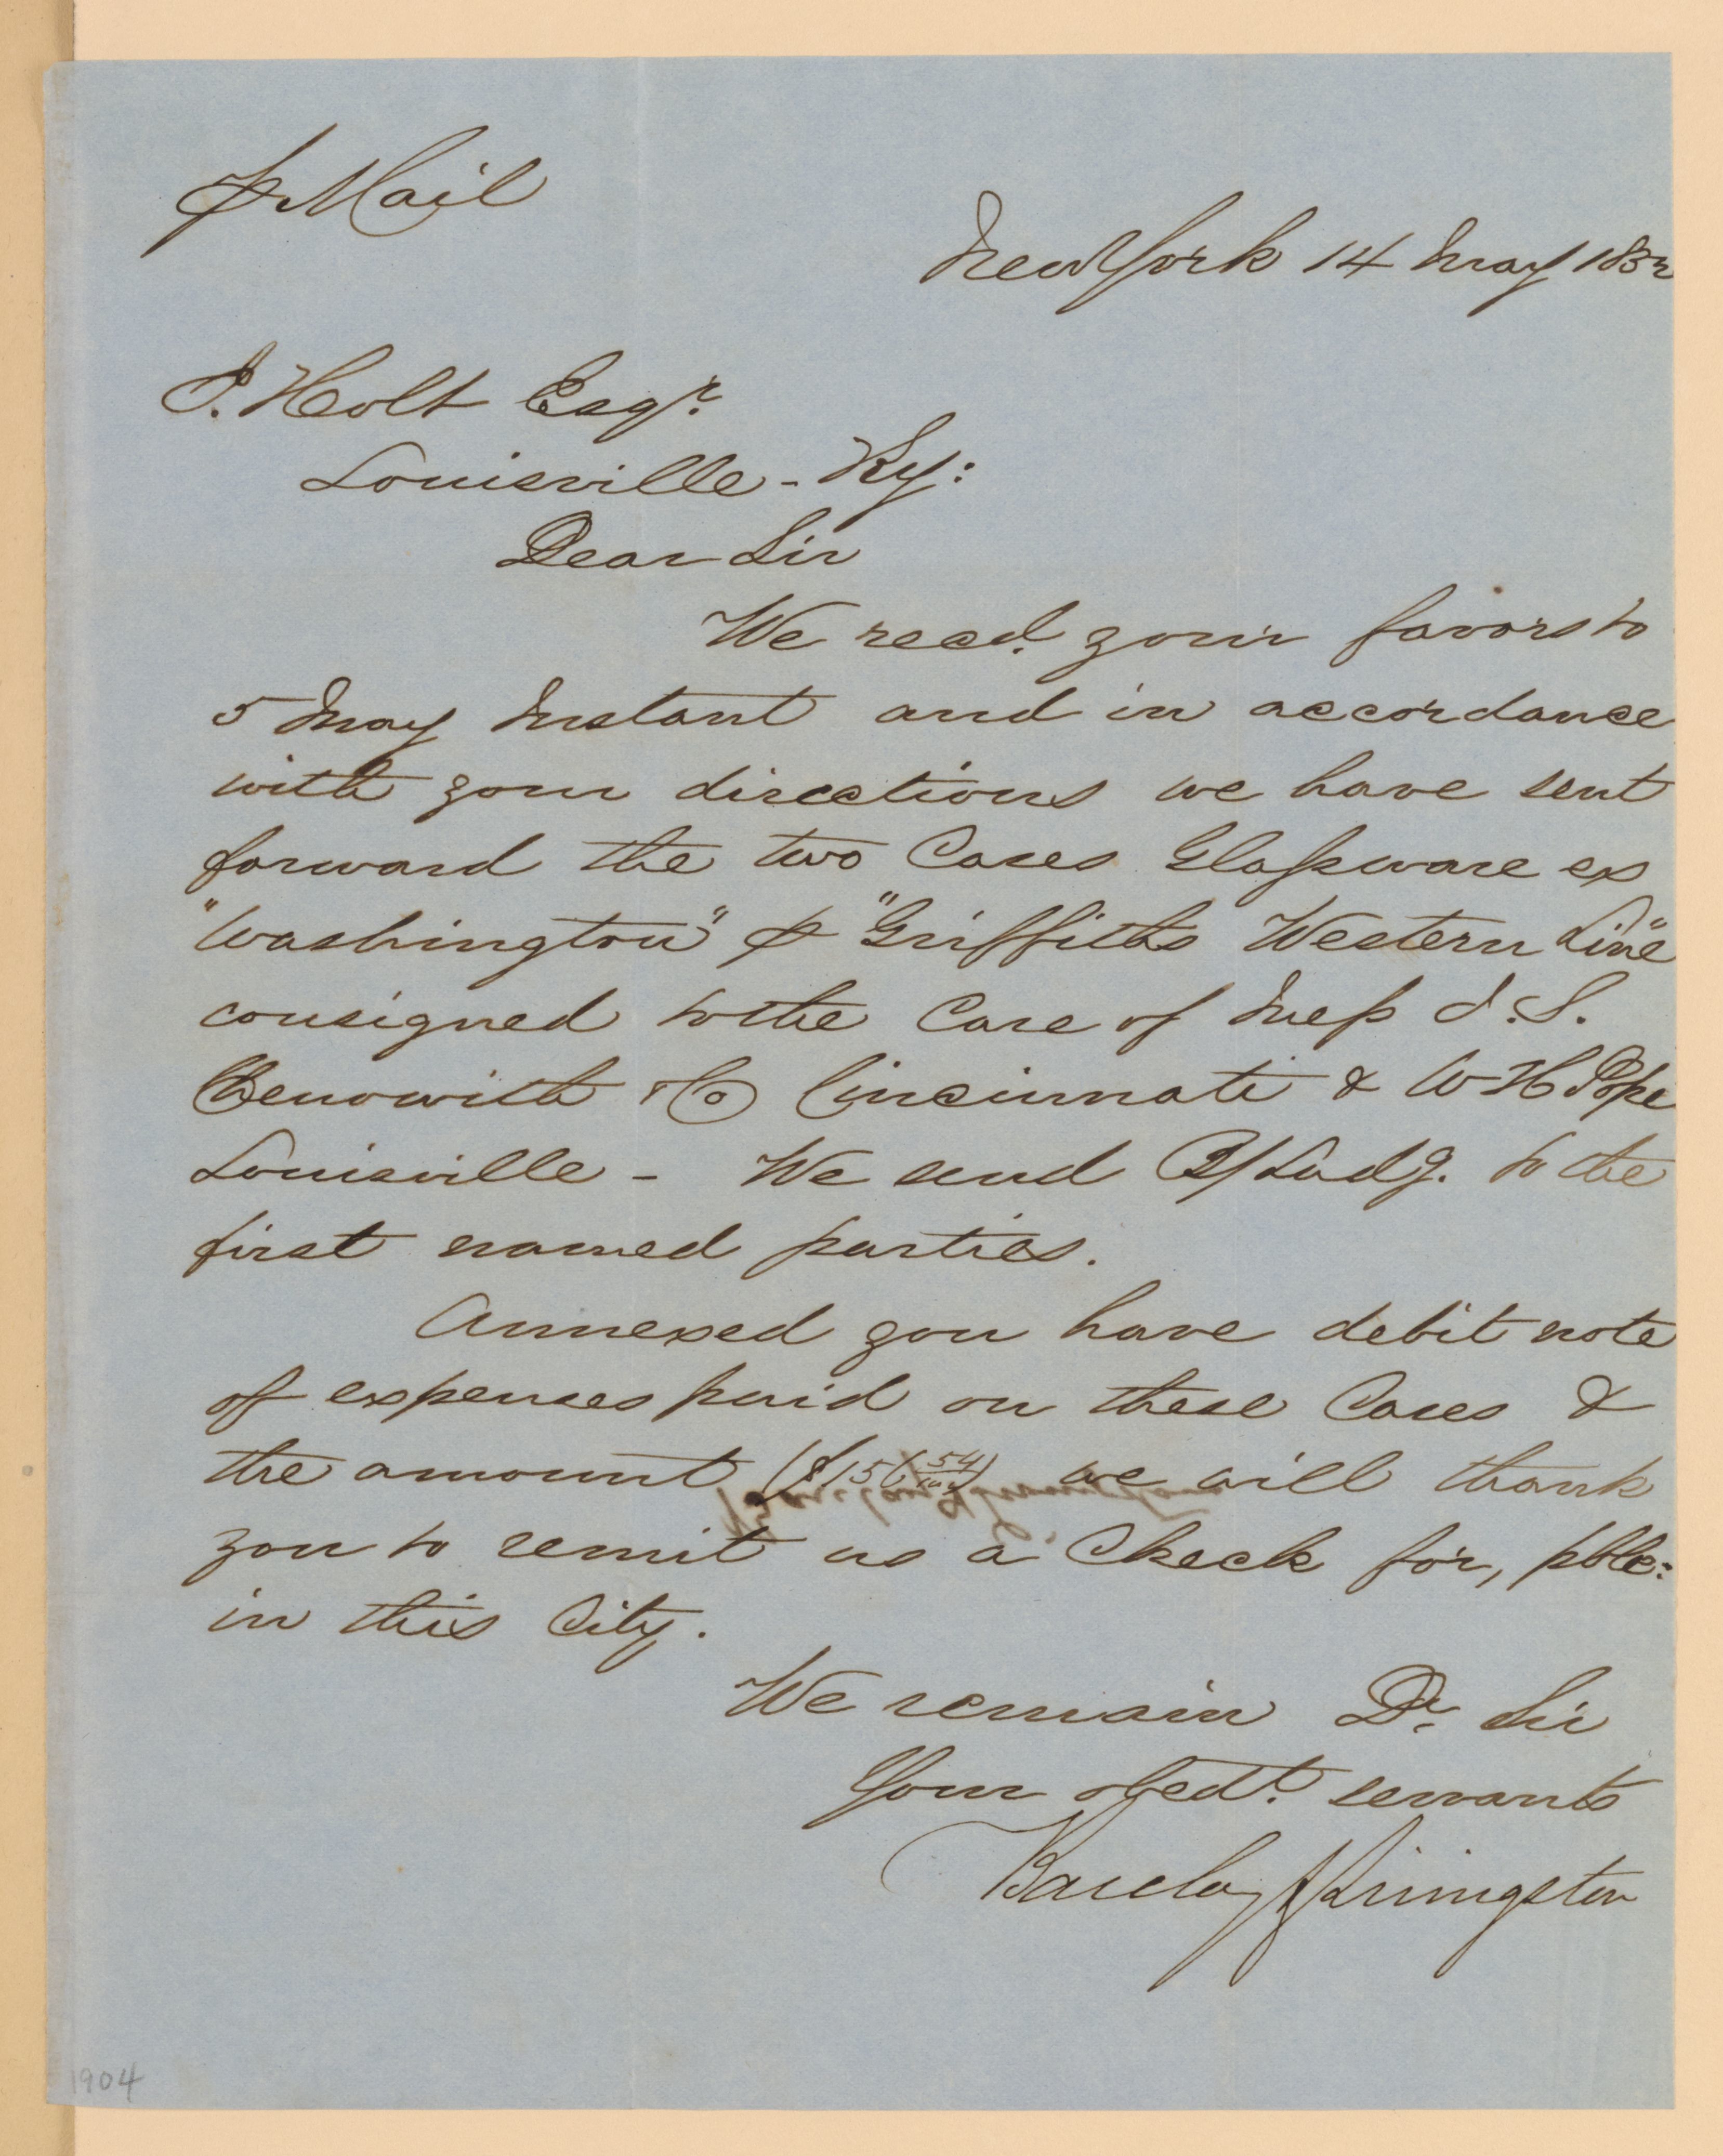 ⅌ Mail
New York 14 May 1852
J. Holt Esqr.
Louisville - Ky:
Dear Sir
We recd. your favors to
5 May Instant and in accordance
with your directions we have sent
forward the two Cases Glassware ex
"Washington" ⅌ "Griffiths Western Line"
consigned to the Care of Mess J. S.
Chenowith & Co Cincinnati & W H Pope
Louisville - We send B/Ladg. to the
first named parties.
Annexed you have debit note
of expenses paid on these Cases &
the amount ($156 54/100) we will thank
you to remit us a Check for, pble:
in this City.
We remain Dr. Sir
Your obedt. servants
Barclay & Livingston
1904